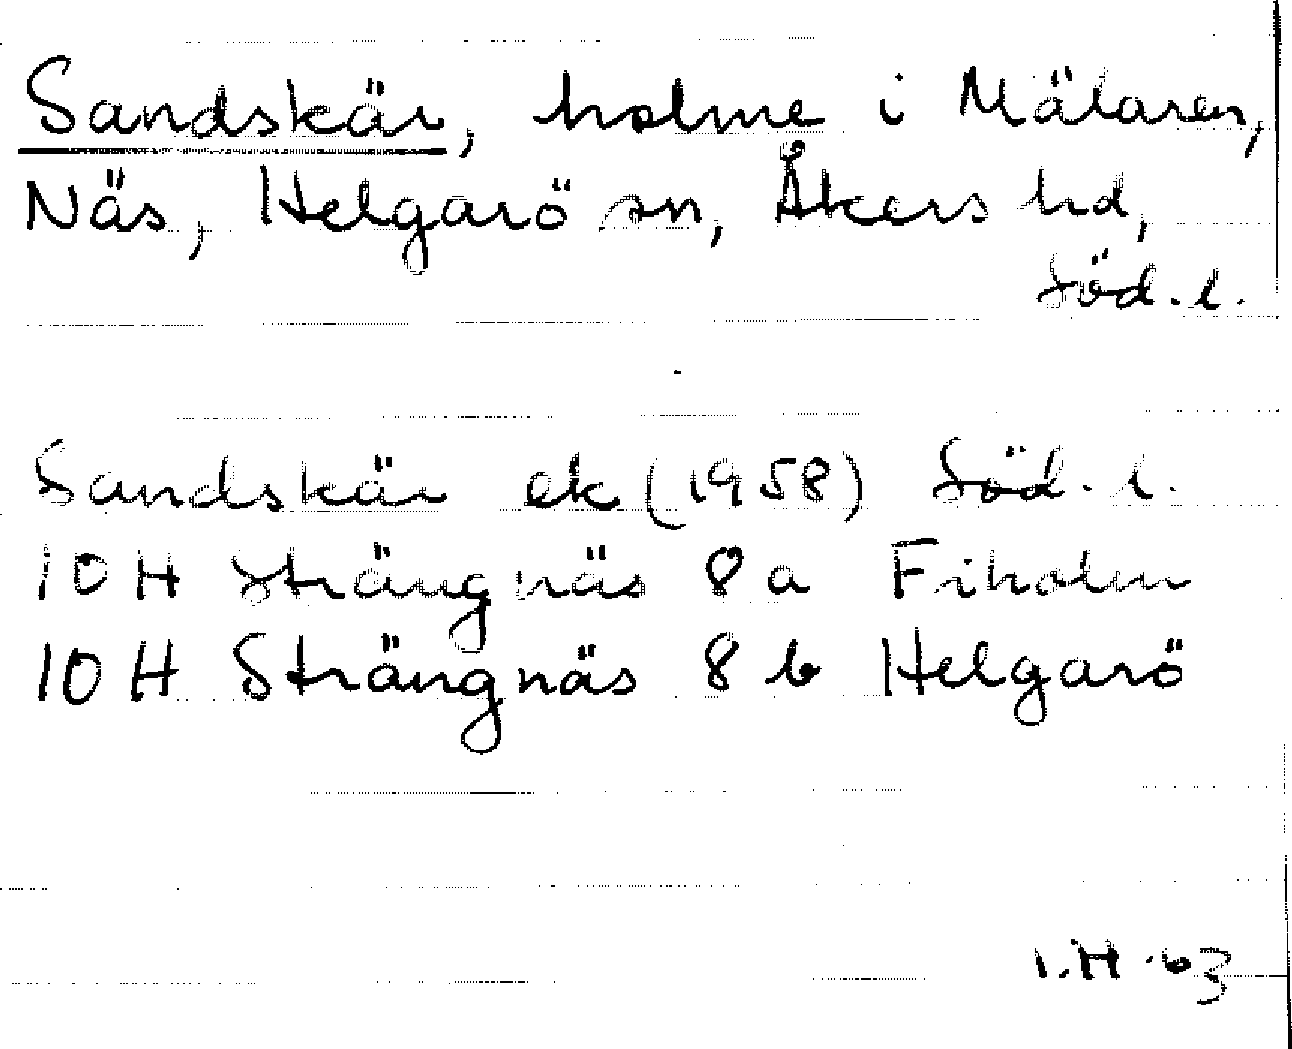 Sandskär, holme i Mälaren,
Näs, Helgarö sn, Åkers hd,
Söd. l.
Sandskär ek (1958) Söd. l.
10 H Strängnäs 8 a Fiholm
10 H Strängnäs 8 b Helgarö
I. H. 63